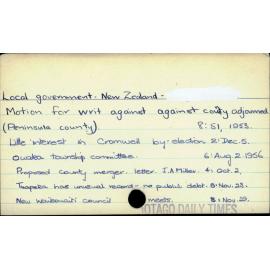 Local government - New Zealand -
Motion for writ against against county adjourned
(Peninsula county). 8: S1, 1953.
Little interest in Cromwell by-election 2: Dec. 5.
Owaka township committee. 6: Aug. 2 1956
Proposed county merger. letter. J.A. Miller. 4: Oct. 2,
Tuapeka has unusual record - no public debt. 8: Nov. 28.
New Waikouaiti council meets. 8: Nov. 29.
OTAGO DAILY TIMES